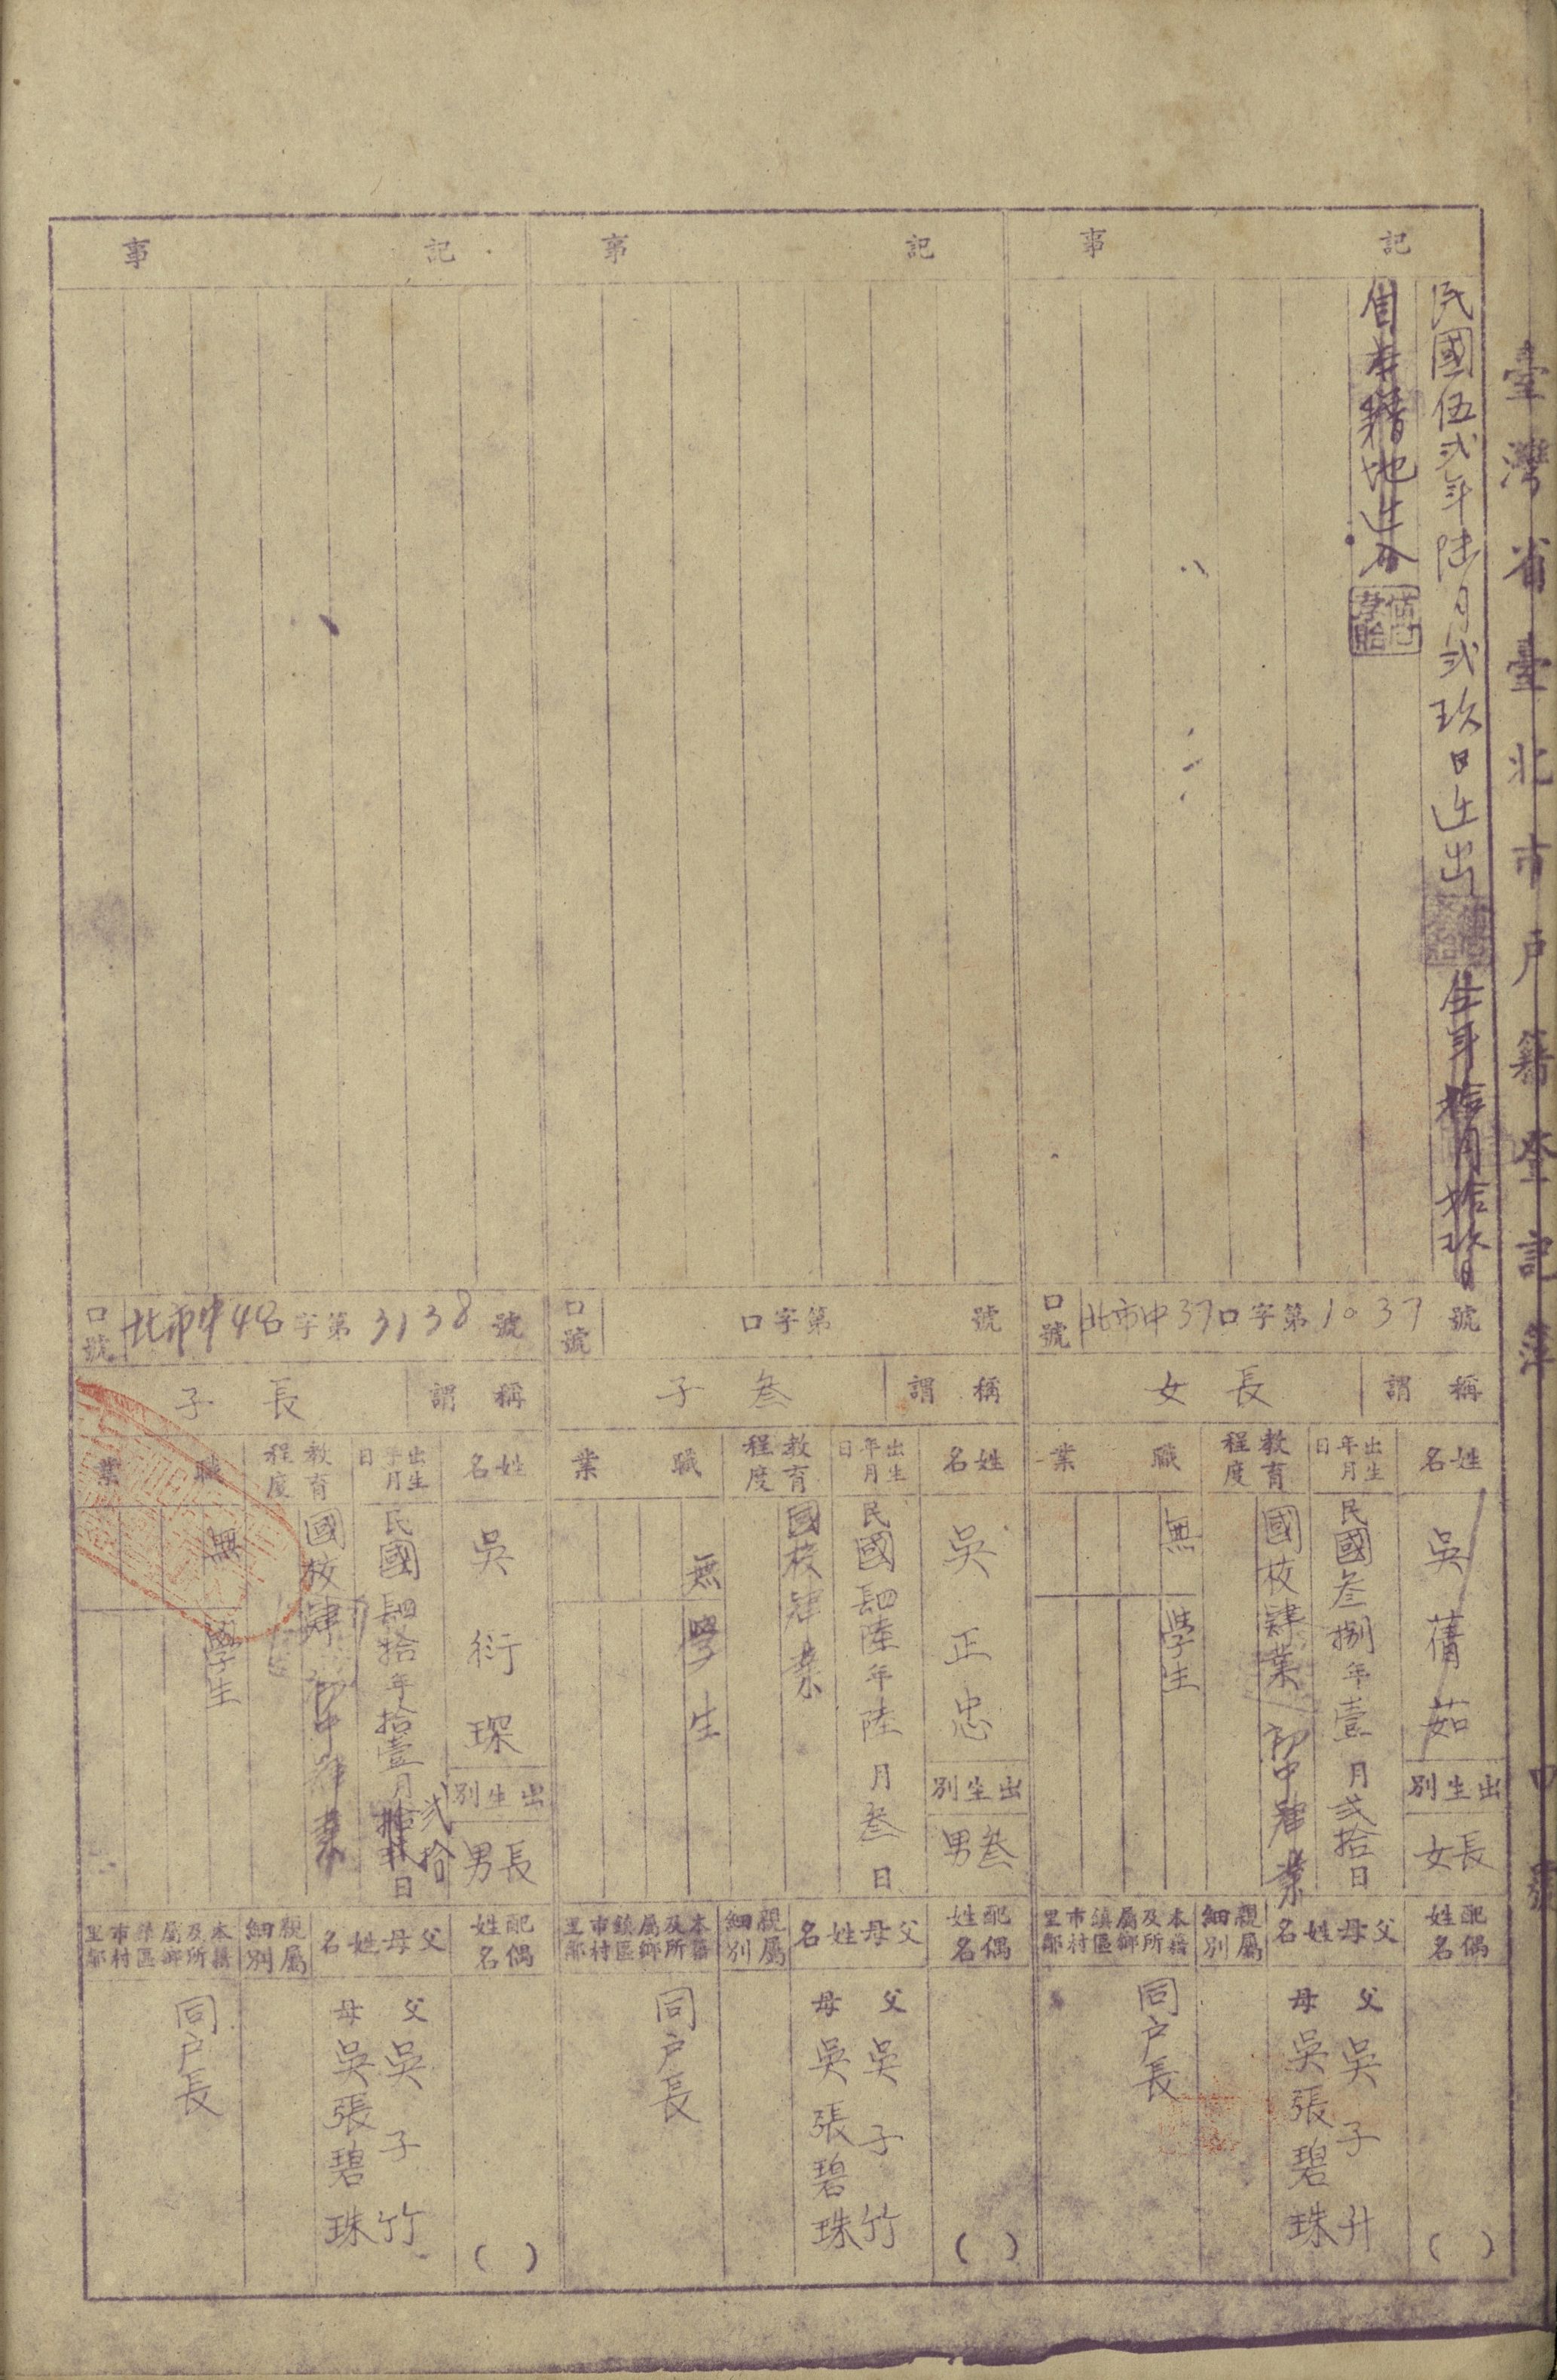 臺灣省臺北市戶籍登記簿
記事
民國伍貳年陸月貳玖日遷出
年拾月拾玖日
自本籍地遷
口號
北市中37口字第1037號
稱謂
長女
姓名
吳蒨茹
出生年月日
民國叁捌年壹月貳拾日
教育程度
國校肄業
初中肄業
職業
無
學生
出生別
長女
配偶姓名
( )
父母姓名
父 吳子竹
母 吳張碧珠
親屬細別
本籍及所屬鄉鎮區市村里鄰
同戶長
記事
口號
口字第 號
稱謂
叁子
姓名
吳正忠
出生年月日
民國肆陸年陸月叁日
教育程度
國校肄業
職業
無
學生
出生別
叁男
配偶姓名
( )
父母姓名
父 吳子竹
母 吳張碧珠
親屬細別
本籍及所屬鄉鎮區市村里鄰
同戶長
記事
口號
北市中48口字第3138號
稱謂
長子
姓名
吳衍琛
出生年月日
民國肆拾年拾壹月
貳拾
日
教育程度
國校肄
初中肄業
職業
無
學生
出生別
長男
配偶姓名
( )
父母姓名
父 吳子竹
母 吳張碧珠
親屬細別
本籍及所屬鄉鎮區市村里鄰
同戶長